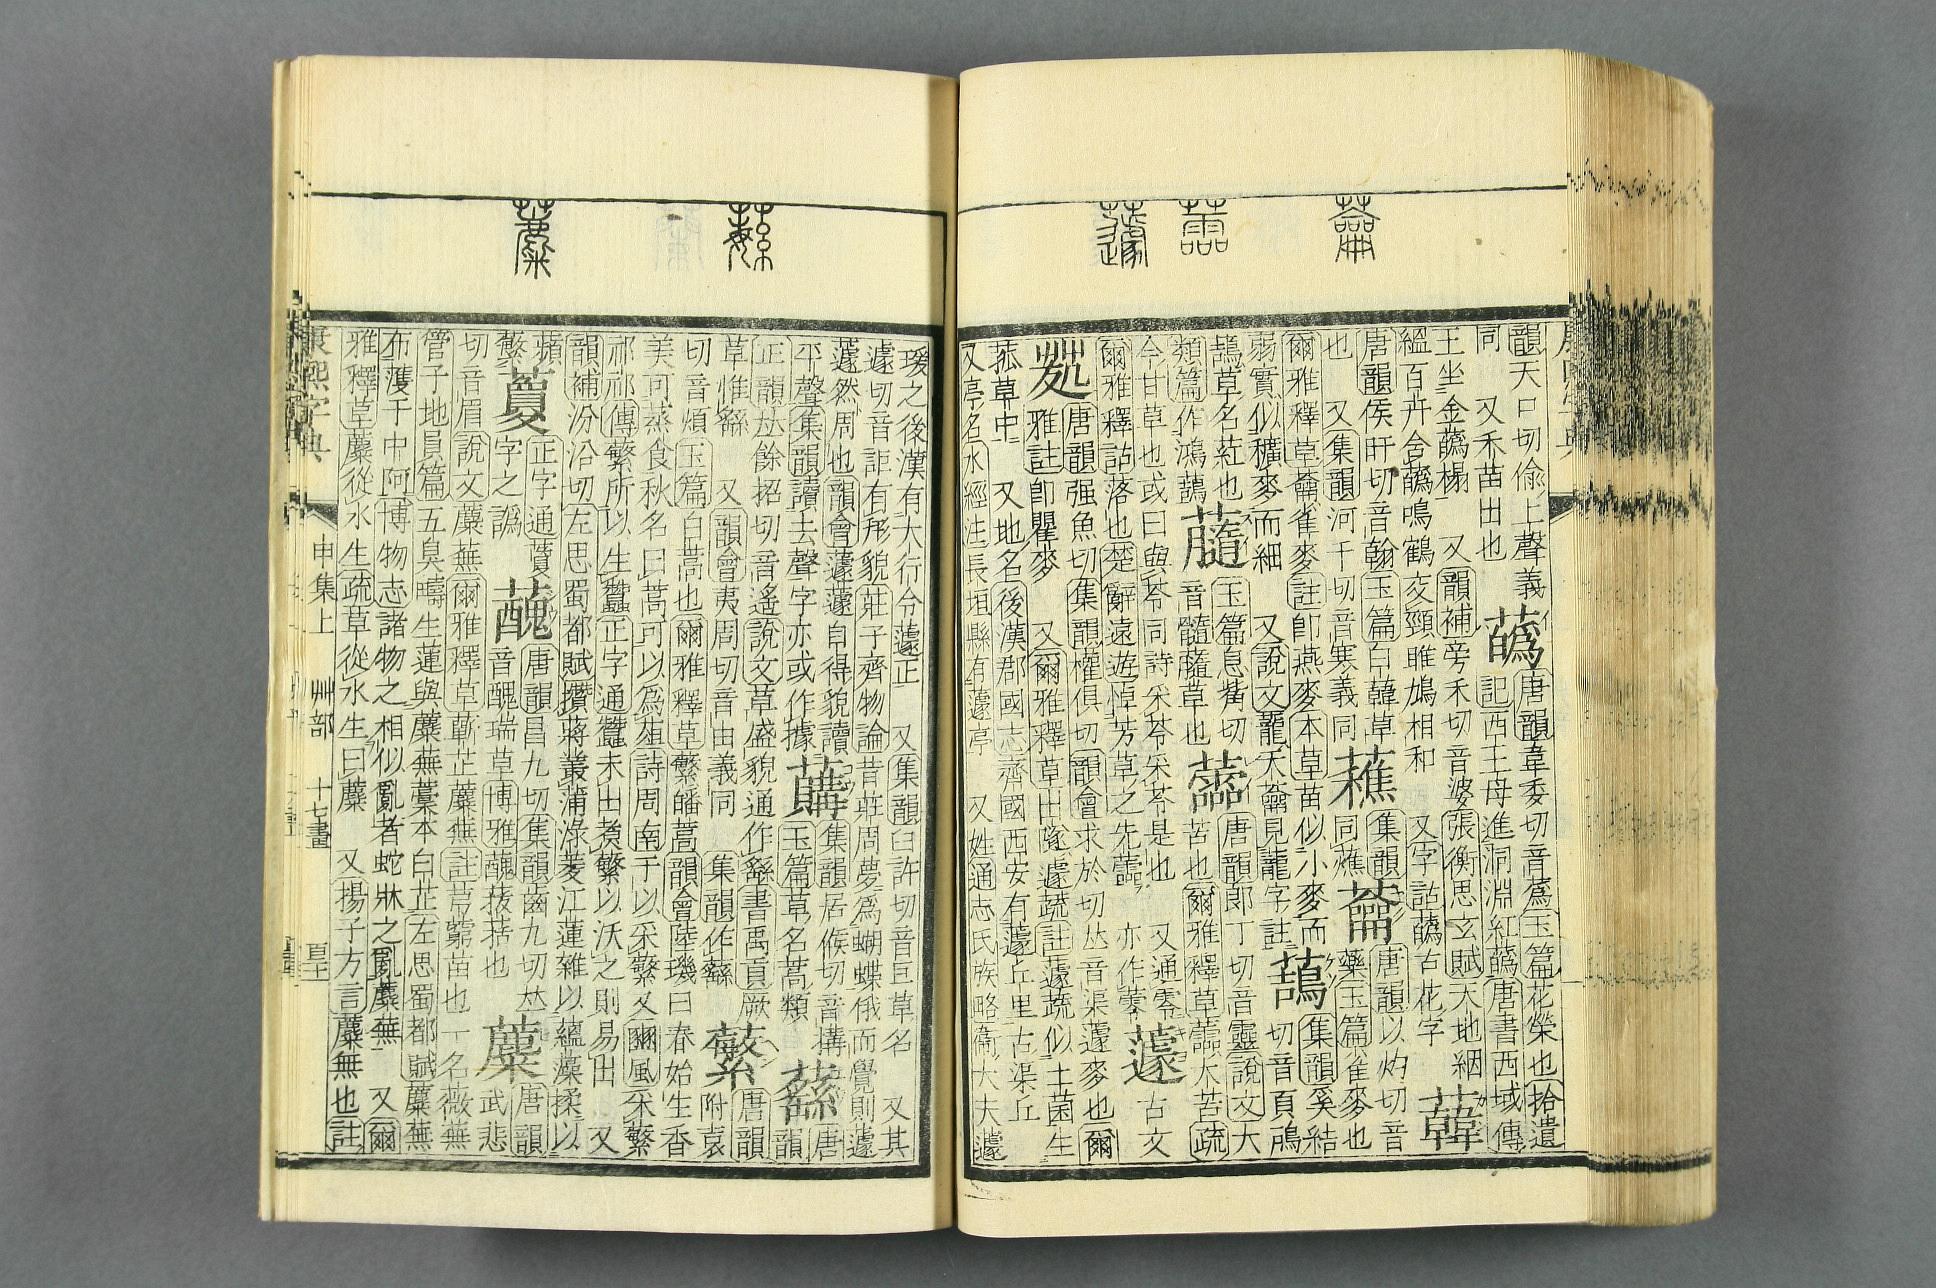 韻天口切偷上聲義
同 又禾苗出也
蘤
唐韻韋委切音蔿玉篇花榮也拾遺
記西王母進洞淵紅蘤唐書西域傳
王坐金蘤榻 又韻補旁禾切音婆張衡思玄賦天地絪
縕百卉含蘤鳴鶴交頸雎鳩相和 又字詁蘤古花字
韓
唐韻侯旰切音翰玉篇白韓草
也 又集韻河干切音寒義同
蘸
爾雅釋草蘥雀麥註卽燕麥本草苗似小麥而
弱實似穬麥而細 又說文蘢天蘥見蘢字註
蘥
唐韻以灼切音
藥玉篇雀麥也
集韻奚結
切音頁鳽
鴰草名葒也
類篇作鴻鵠
玉篇息觜切
音髓蘟草也
蘦
唐韻郎丁切音靈說文大
苦也爾雅釋草蘦大苦疏
今甘草也或曰與苓同詩采苓采苓是也 又通零
爾雅釋詁落也楚辭遠遊悼芳草之先蘦 亦作蕶
蘧
古文
唐韻强魚切集韻權俱切韻會求於切𠀤音渠蘧麥也爾
雅註卽瞿麥 又爾雅釋草出隧蘧蔬註蘧蔬似土菌生
菰草中 又地名後漢郡國志齊國西安有蘧丘里古渠丘
又亭名水經注長垣縣有蘧亭 又姓通志氏族略衞大夫蘧
瑗之後漢有大行令蘧正 又集韻臼許切音巨草名 又其
遽切音詎有形貌莊子齊物論昔莊周夢爲蝴蝶俄而覺則蘧
蘧然周也韻會蘧蘧自得貌讀
平聲集韻讀去聲字亦或作據
集韻居候切音搆
玉篇草名蒿類
蘨
唐
韻
正韻𠀤餘招切音遙說文草盛貌通作繇書禹貢厥
草惟繇 又韻會夷周切音由義同 集韻作蘨
蘩
唐韻
附袁
切音煩玉篇白蒿也爾雅釋草蘩皤蒿韻會陸璣曰春始生香
美可蒸食秋名曰蒿可以爲葅詩周南于以采蘩又豳風采蘩
祁祁傳蘩所以生蠶正字通蠶未出煑蘩以沃之則易出 又
韻補汾沿切左思蜀都賦攢蔣叢蒲淥菱江蓮雜以蘊藻揉以
蘋蘩
正字通
字之譌
唐韻昌九切集韻齒九切𠀤
音醜瑞草博雅
蘪
唐韻
武悲
切音眉說文蘪蕪爾雅釋草蘄茝蘪蕪註芎藭苗也一名薇蕪
管子地員篇五臭疇生蓮與蘪蕪藁本白芷左思蜀都賦蘪蕪
布濩于中阿博物志諸物之相似亂者蛇牀之亂蘪蕪 又爾
雅釋草蘪從水生疏草從水生曰蘪 又揚子方言蘪無也註
康熙字典
申集上
艸部
十七畫